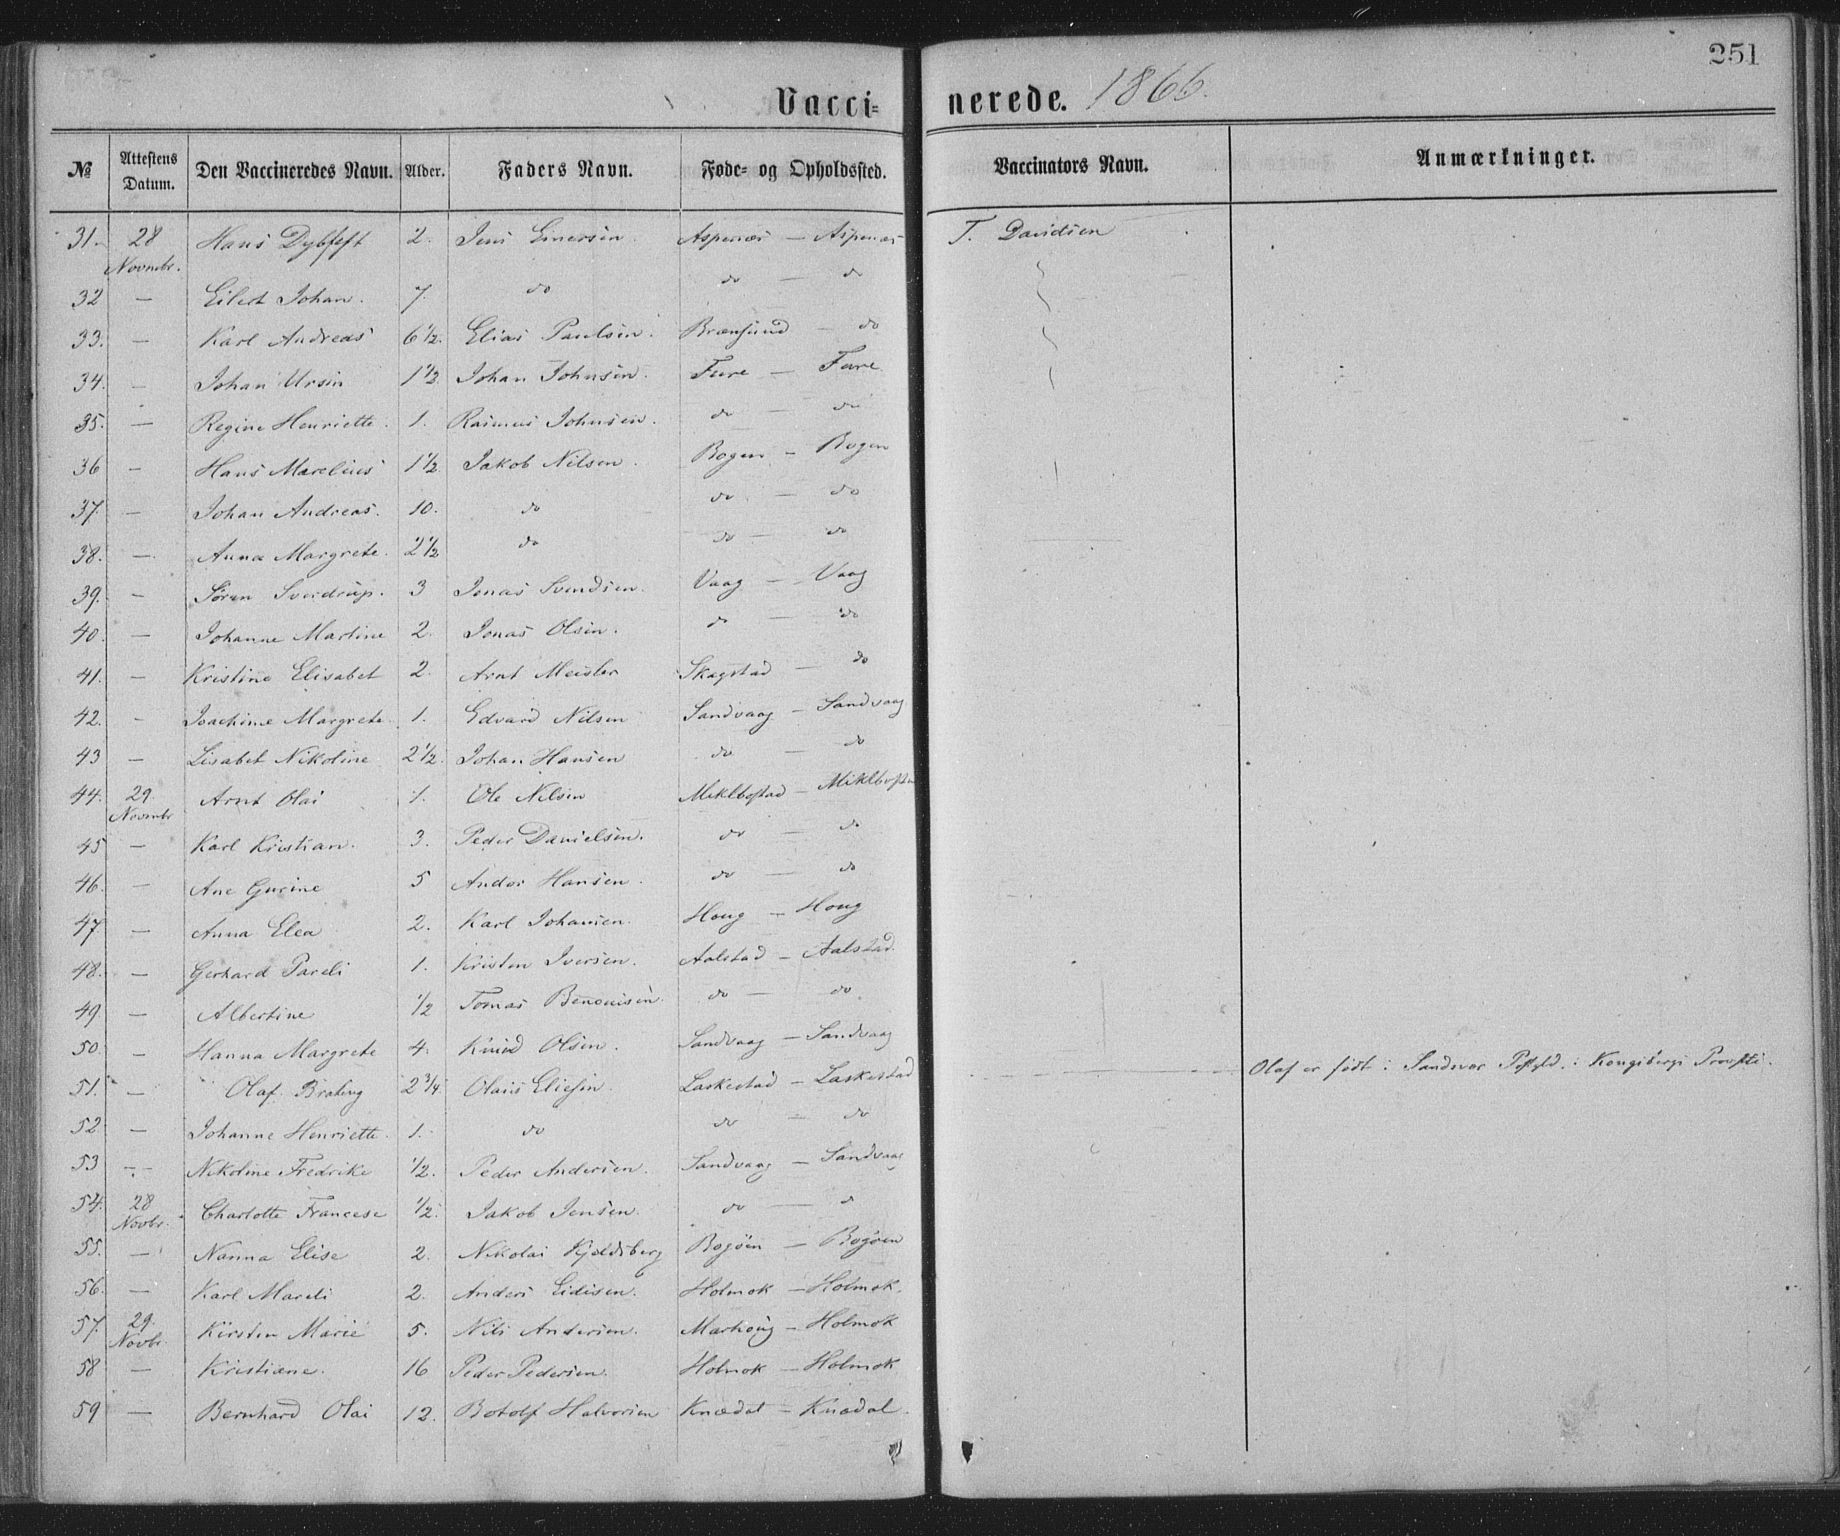 251
Vacci-nerede. 1866.
№ | Attestens Datum. | Den Vaccineredes Navn. | Alder. | Faders Navn. | Føde- og Opholdssted. | Vaccinators Navn. | Anmærkninger.
31. | 28 Novmbr. | Hans | 2. | Jens Einersen. | Aspenæs — Aspenæs | T. Davidsen
32 | — | Eilert Johan. | 7. | do | do — do
33. | — | Karl Andreas | 6 1/2. | Elias Paulsen. | Brænsund — do
34. | — | Johan Ursin | 1 1/2 | Johan Johnsen. | Fure — Fure
35. | — | Regine Henriette. | 1. | Rasmus Johnsen. | do — do
36 | — | Hans Marelius | 1 1/2 | Jakob Nilsen. | Bogen — Bogen
37 | — | Johan Andreas. | 10. | do | do — do
38. | — | Anna Margrete. | 2 1/2 | do | do — do
39. | — | Søren Sverdrup. | 3 | Jonas Svendsen. | Vaag — Vaag
40. | — | Johanne Martine | 2. | Jonas Olsen. | do — do
41. | — | Kristine Elisabet | 2. | Arnt Meisler | Skagstad — do
42. | — | Joachime Margrete. | 1. | Edvard Nilsen | Sandvaag — Sandvaag
43 | — | Lisabet Nikoline | 2 1/2. | Johan Hansen | do — do
44. | 29 Novmbr | Arnt Olai | 1. | Ole Nilsen | Miklbostad — Miklbostad
45 | — | Karl Kristian. | 3. | Peder Danielsen. | do — do
46. | — | Ane Gurine | 5 | Andor Hansen. | do — do
47. | — | Anna Elea | 2. | Karl Johansen. | Houg — Houg
48. | — | Gerhard Pareli | 1. | Kristen Iversen. | Aalstad — Aalstad.
49. | — | Albertine | 1/2 | Tomas Benonisen. | do — do
50. | — | Hanna Margrete | 4. | Knud Olsen. | Sandvaag — Sandvaag
51. | — | Olaf | 2 3/4 | Olaus Eliesen. | Laskestad — Laskestad | Olaf er født i Sandsvær i Kongsbergs Provsti.
52. | — | Johanne Henriette. | 1. | do | do — do
53 | — | Nikoline Fredrike | 1/2. | Peder Andersen. | Sandvaag — Sandvaag
54. | 28 Novbr. | Charlotte Francese | 1/2. | Jakob Jensen. | do — do
55. | — | Nanna Elise | 2. | Nikolai Kjeldsberg | Bogöen — Bogöen
56. | — | Karl Mareli | 2. | Anders Eidisen. | Holmok — Holmok.
57. | 29. Novbr. | Kirsten Marie | 5. | Nils Andersen. | Marhoug — Holmok
58 | — | Kristiane. | 16 | Peder Pedersen. | Holmok — Holmok
59 | — | Bernhard Olai | 12. | Botolf Halvorsen | Knædal — Knædal.